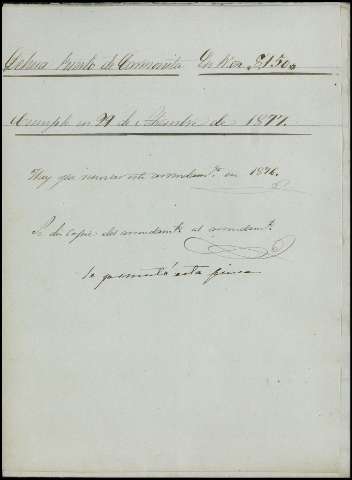 Dehesa Puerto de Carmonita En Rvon 2150
Cumple en 29 de Setiembre de 1877.
Hay que renovar este arrendam.to en 1876.
Se dió copia del arrendam.to al arrendat.o
Se permutó esta finca